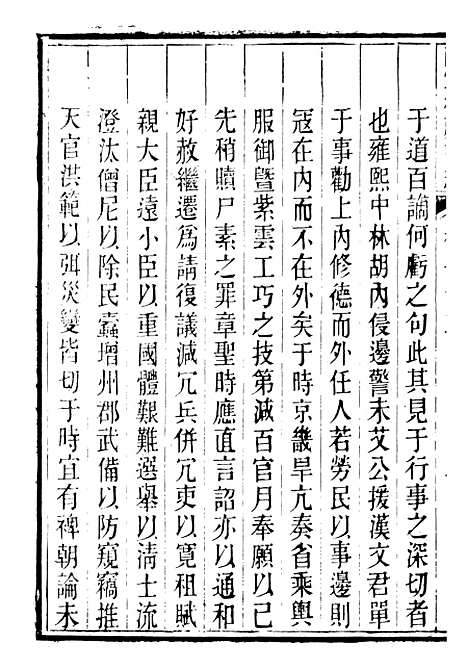 于道百謫何虧之句此其見于行事之深切者
也雍熙中林胡內侵邊警未艾公援漢文君單
于事勸上內修德而外任人若勞民以事邊則
冦在內而不在外矣于時京畿旱亢奏省乘輿
服御曁紫雲工巧之技第減百官月奉願以己
先稍贖尸素之罪章聖時應直言詔亦以通和
好赦繼遷爲請復議減冗兵併冗吏以寬租賦
親大臣遠小臣以重國體艱難選舉以淸士流
澄汰僧尼以除民蠧增州郡武備以防窺竊推
天官洪範以弭災變皆切于時宜有裨朝論未